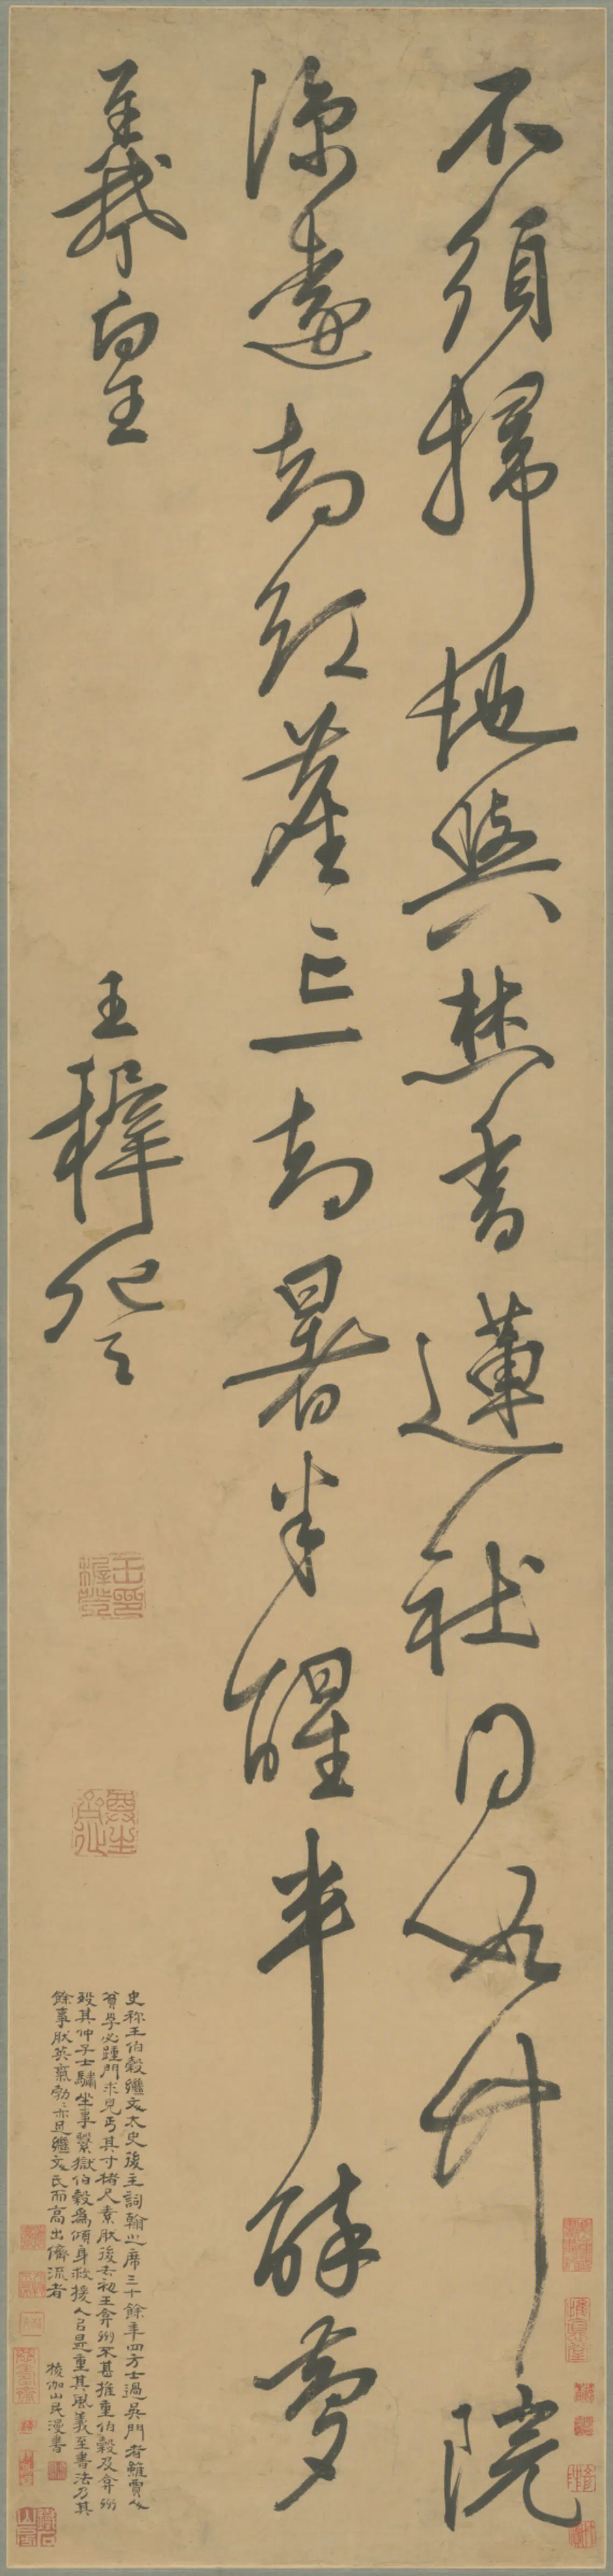 不須掃地與焚香蓮社同如竹院
涼遠却紅塵忘却暑半醒半醉夢
羲皇
王穉登
史称王伯穀繼文太史後主詞翰之席三十餘年四方士過吳門者雖賈人
必踵門求見丐其寸楮尺素然後去初王弇州不甚推重伯穀及弇州
歿其仲子士驌坐事繫獄伯穀為傾身救援人以是重其風義至書法乃其
餘事然英氣勃勃亦足繼文氏而高出儕流者
棱伽山民漫書